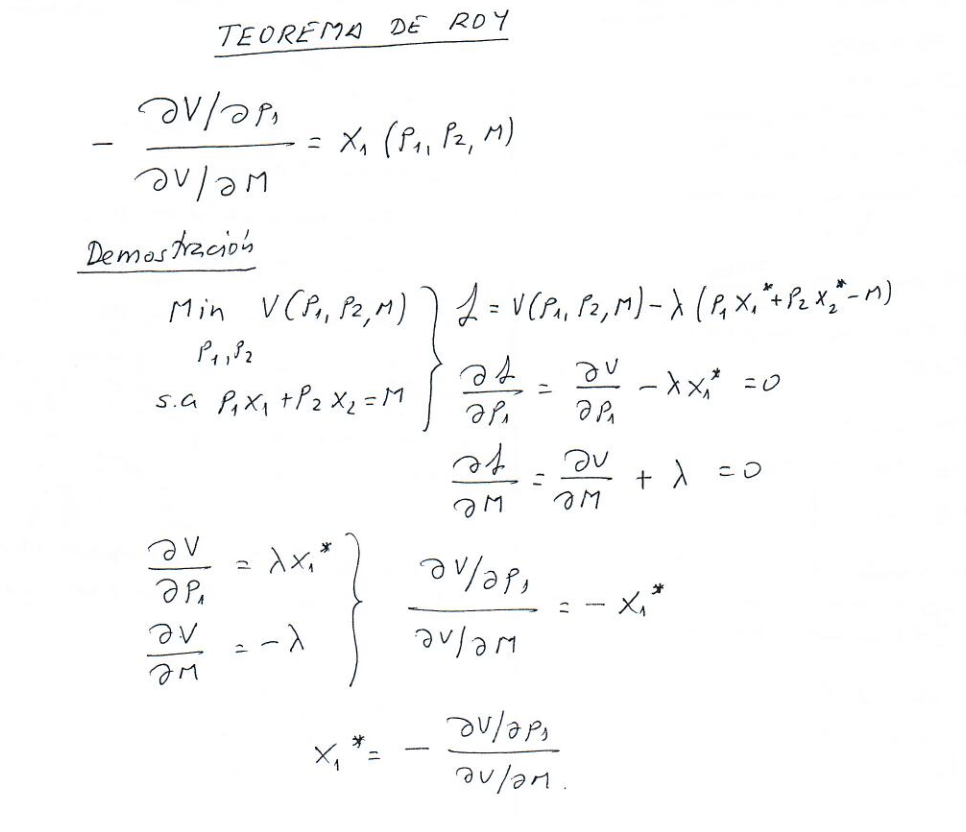 TEOREMA DE ROY
- ∂V/∂P₁ / ∂V/∂M = X₁ (P₁, P₂, M)
Demostración
Min V(P₁, P₂, M)
P₁, P₂
s.a P₁X₁ + P₂X₂ = M
ℒ = V(P₁, P₂, M) - λ (P₁X₁* + P₂X₂* - M)
∂ℒ/∂P₁ = ∂V/∂P₁ - λX₁* = 0
∂ℒ/∂M = ∂V/∂M + λ = 0
∂V/∂P₁ = λX₁*
∂V/∂M = -λ
∂V/∂P₁ / ∂V/∂M = - X₁*
X₁* = - ∂V/∂P₁ / ∂V/∂M.